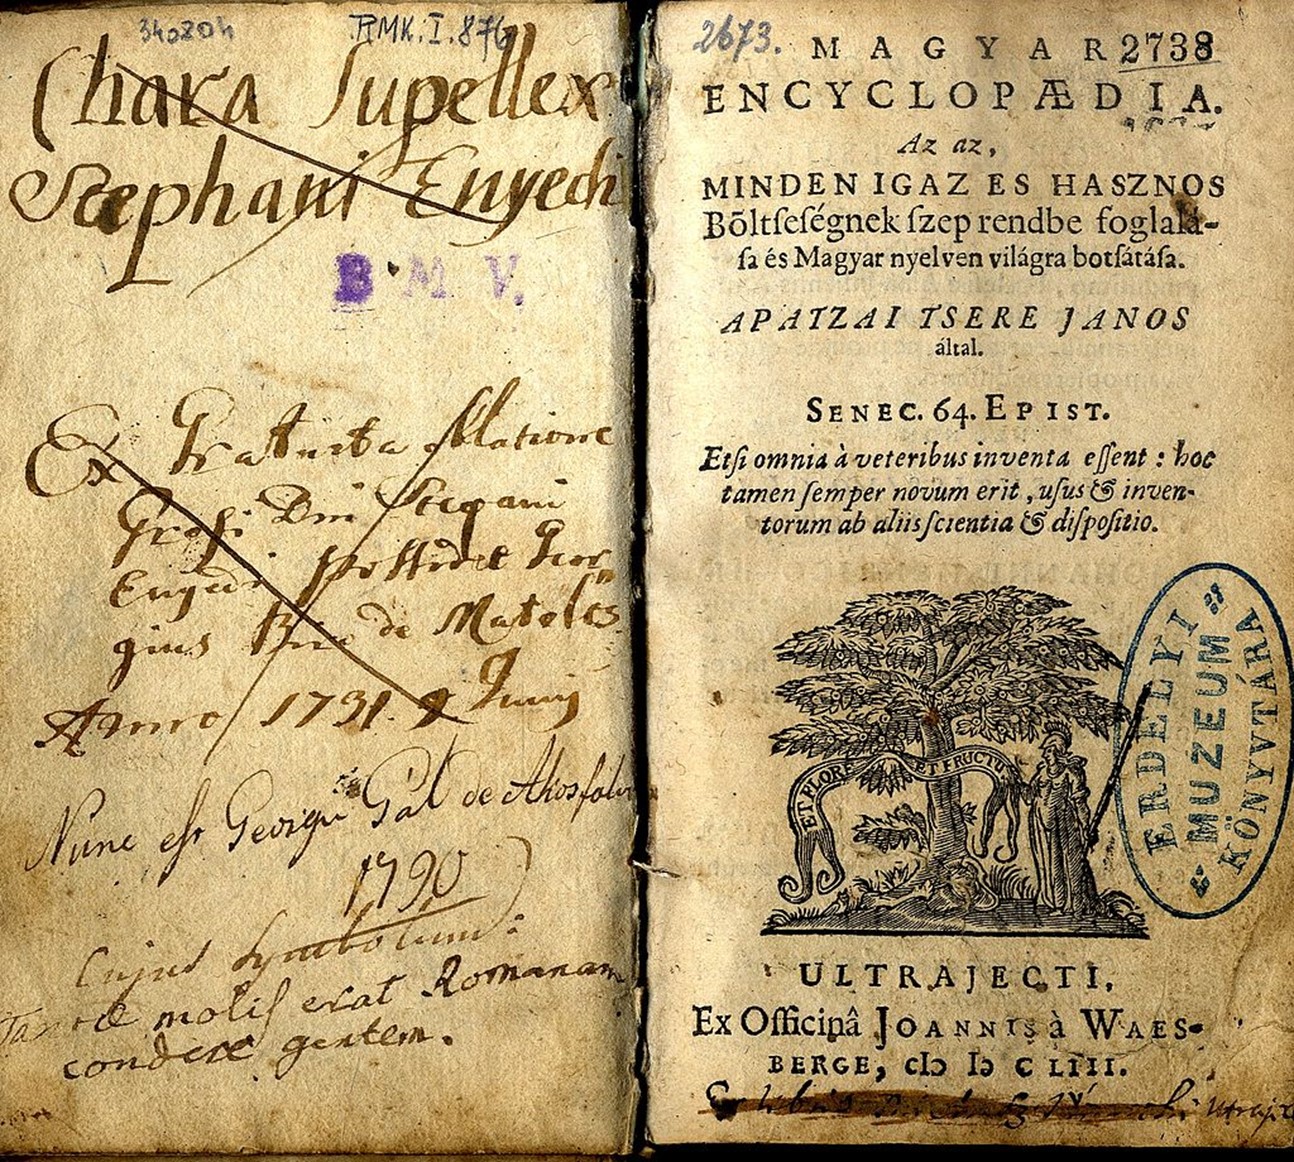 340204
RMK. I. 876
Chara Supellex
Stephani Enyedi
B. M. V.
Ex Gratuita oblatione
Stepani
Enyedi possidet Geor
gius de Matolcs
Anno 1731. 9 Junij
Nunc est Georgii Gál de Akosfalva
1790
Cujus Symbolum:
Tantae molis erat Romanam
condere gentem.
2673.
MAGYAR 2738
ENCYCLOPÆDIA.
Az az,
MINDEN IGAZ ES HASZNOS
Bőltſeſégnek ſzep rendbe foglalá-
ſa és Magyar nyelven világra botſátáſa.
APATZAI TSERE JANOS
által.
SENEC. 64. EPIST.
Etſi omnia à veteribus inventa eſſent : hoc
tamen ſemper novum erit , uſus & inven-
torum ab aliis ſcientia & diſpoſitio.
ET FLORE ET FRUCTU
ERDÉLYI
MUZEUM
KÖNYVTÁRA
ULTRAJECTI,
Ex Officinâ JOANNIS à WAES-
BERGE, cIɔ Iɔ C LIII.
Ex libris